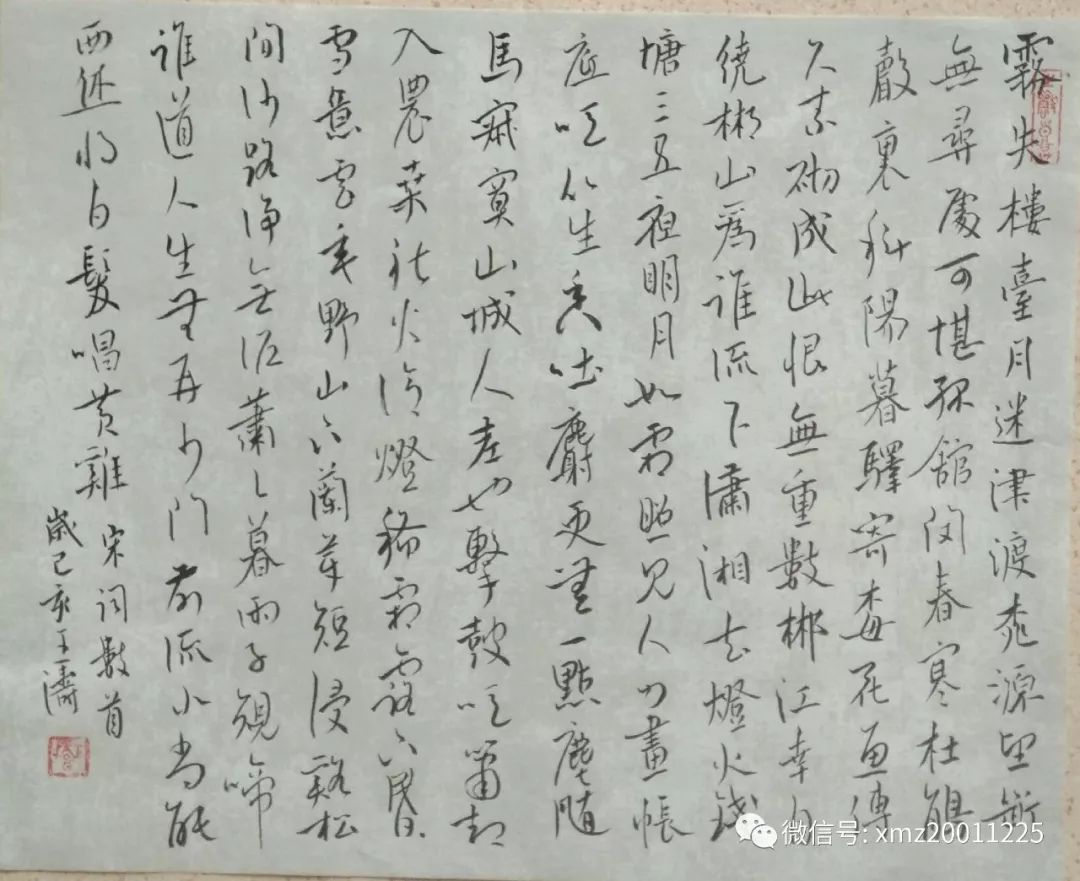 霧失樓臺月迷津渡桃源望斷
無尋處可堪孤館閉春寒杜鵑
聲裏斜陽暮驛寄梅花魚傳
尺素砌成此恨無重數郴江幸自
繞郴山爲誰流下瀟湘去燈火錢
塘三五夜明月如霜照見人如畫帳
底吹笙香吐麝更無一點塵隨
馬寂寞山城人老也擊鼓吹簫却
入農桑社火冷燈稀霜露下昏々
雪意雲垂野山下蘭芽短浸谿松
間沙路淨無泥蕭々暮雨子規啼
誰道人生無再少門前流水尚能
西休將白髮唱黃雞
宋詞數首
歲己亥王濤
微信号: xmz20011225